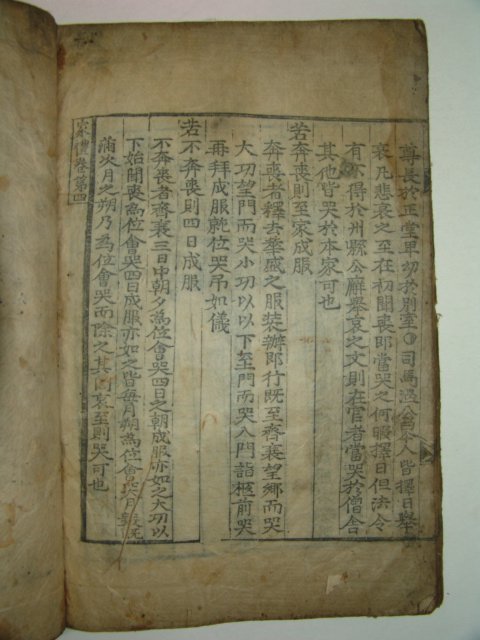 尊長於正堂卑幼於別室○司馬溫公曰今人皆擇日舉
哀凡悲哀之至在初聞喪即當哭之何暇擇日但法令
有不得於州縣公廨舉哀之文則在官者當哭於僧舍
其他皆哭於本家可也
若奔喪則至家成服
奔喪者釋去華盛之服裝辦即行既至齊衰望鄉而哭
大功望門而哭小功以下至門而哭入門詣柩前哭
再拜成服就位哭弔如儀
若不奔喪則四日成服
不奔喪者齊衰三日中朝夕為位會哭四日之朝成服亦如之大功以
下始聞喪為位會哭四日成服亦如之皆每月朔為位會哭月數既
滿次月之朔乃為位會哭而除之其間哀至則哭可也
家禮卷第四